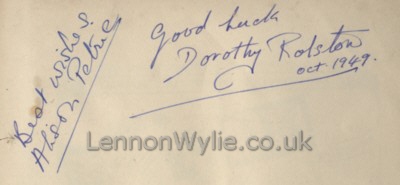 Best wishes
Alison Petrie
Good Luck
Dorothy Rolston
Oct. 1949.
LennonWylie.co.uk